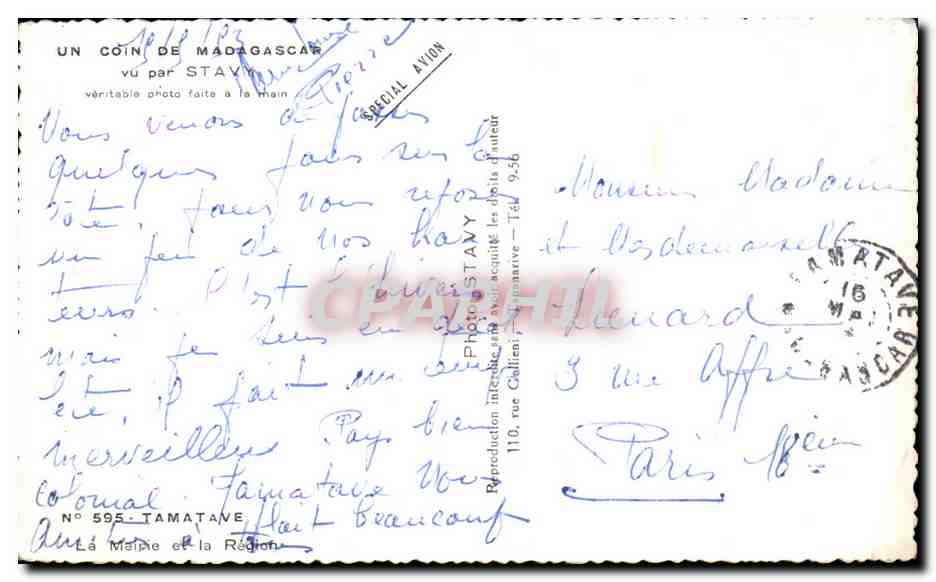 UN COIN DE MADAGASCAR
vu par STAVY
véritable photo faite à la main
Pierre
SPECIAL AVION
Vous venons de passer
quelques jours sur la
côte, pour nous reposer
un peu de nos hau
teurs. C'est l'hiver
mais je suis en
été, il fait un
merveilleux Pays bien
colonial. Tamatave nous
plait beaucoup
Amitiés à tous
N° 595 - TAMATAVE
La Mairie et la Région
Photo STAVY
Reproduction interdite sans avoir acquitté les droits d'auteur
110, rue Gallieni - Tananarive - Tél. 9-56
Monsieur Madame
et Mesdemoiselles
Lienard
3 rue Affre
Paris 18ème
TAMATAVE
16
MAI
MADAGASCAR
CPARHTI